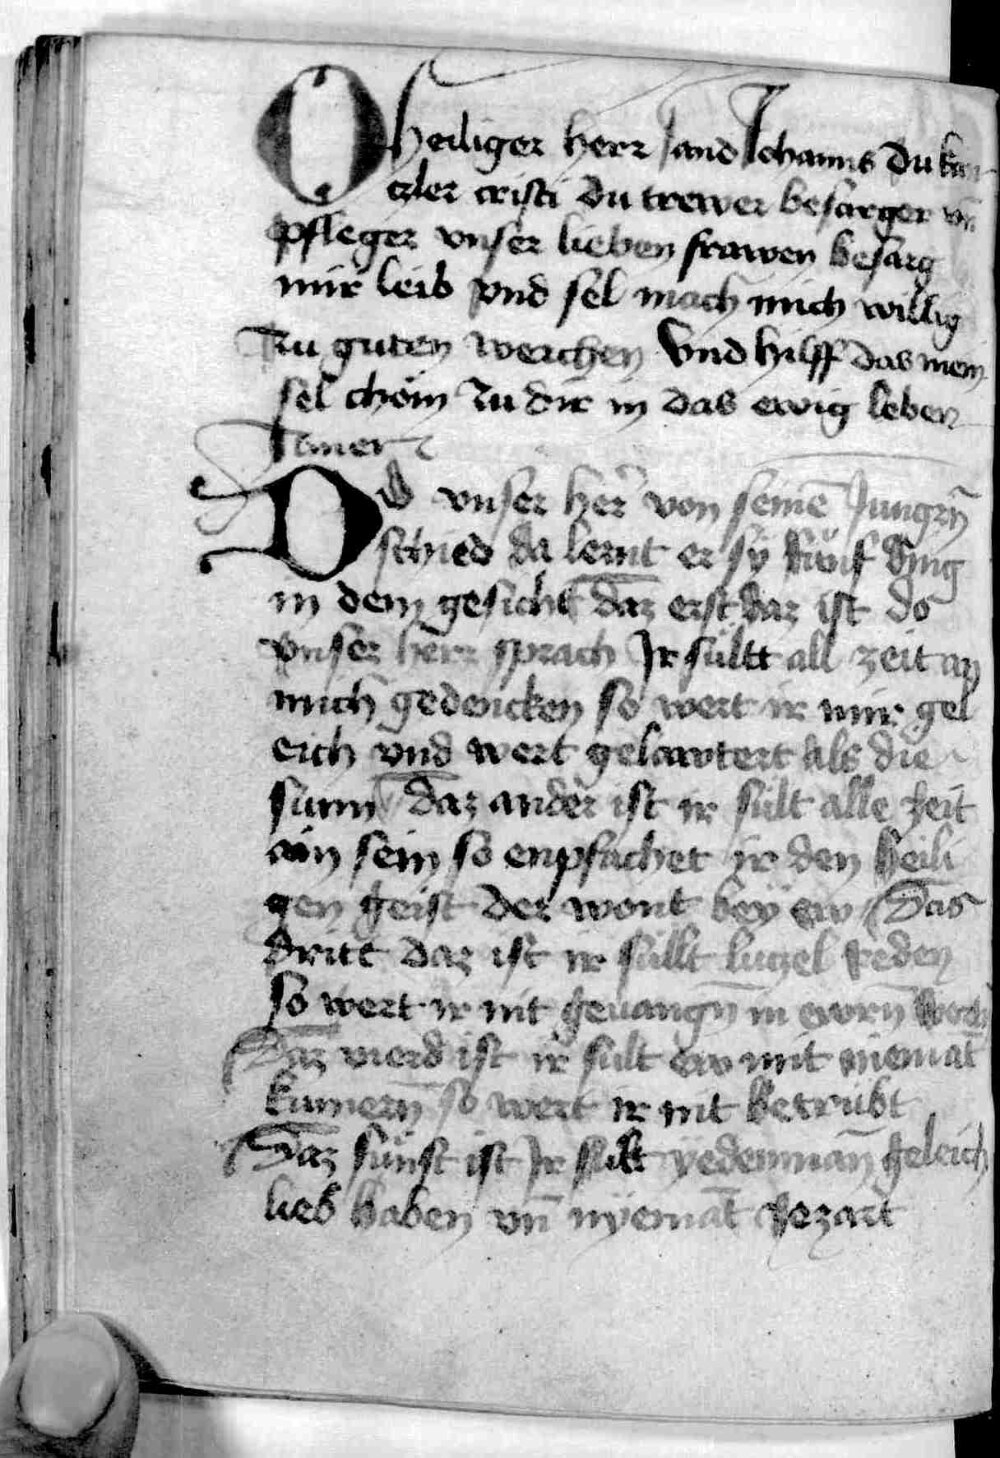 O heiliger herr sand Johanns du kan
czler cristi du trewer besarger vn̄
pfleger vnser lieben frawen besarg
mir leib vnd sel mach mich willig
zu guten werchen Vnd hilff das mein
sel chöm zu dir in das ewig leben
Amen
Do vnser her̄ von seinē Jungrn̄
schied da lernt er sÿ fünf ding
in dem gesicht daz erst daz ist do
vnser herr sprach Jr süllt all zeit an
mich gedencken so wert ir mir gel
eich vnd wert gelawtert als die
sunn daz ander ist ir sült alle zeit
ain sein so enpfachet ir den heili
gen geist der wont beÿ ew Das
dritt daz ist ir süllt luczel reden
so wert ir nit geuangn̄ in ewrn̄
Daz vierd ist ir sult ew mit niemāt
kumern̄ so wert ir nit betrübt
Daz fünft ist Jr sült yedermān geleich
lieb haben vn̄ nÿemāt